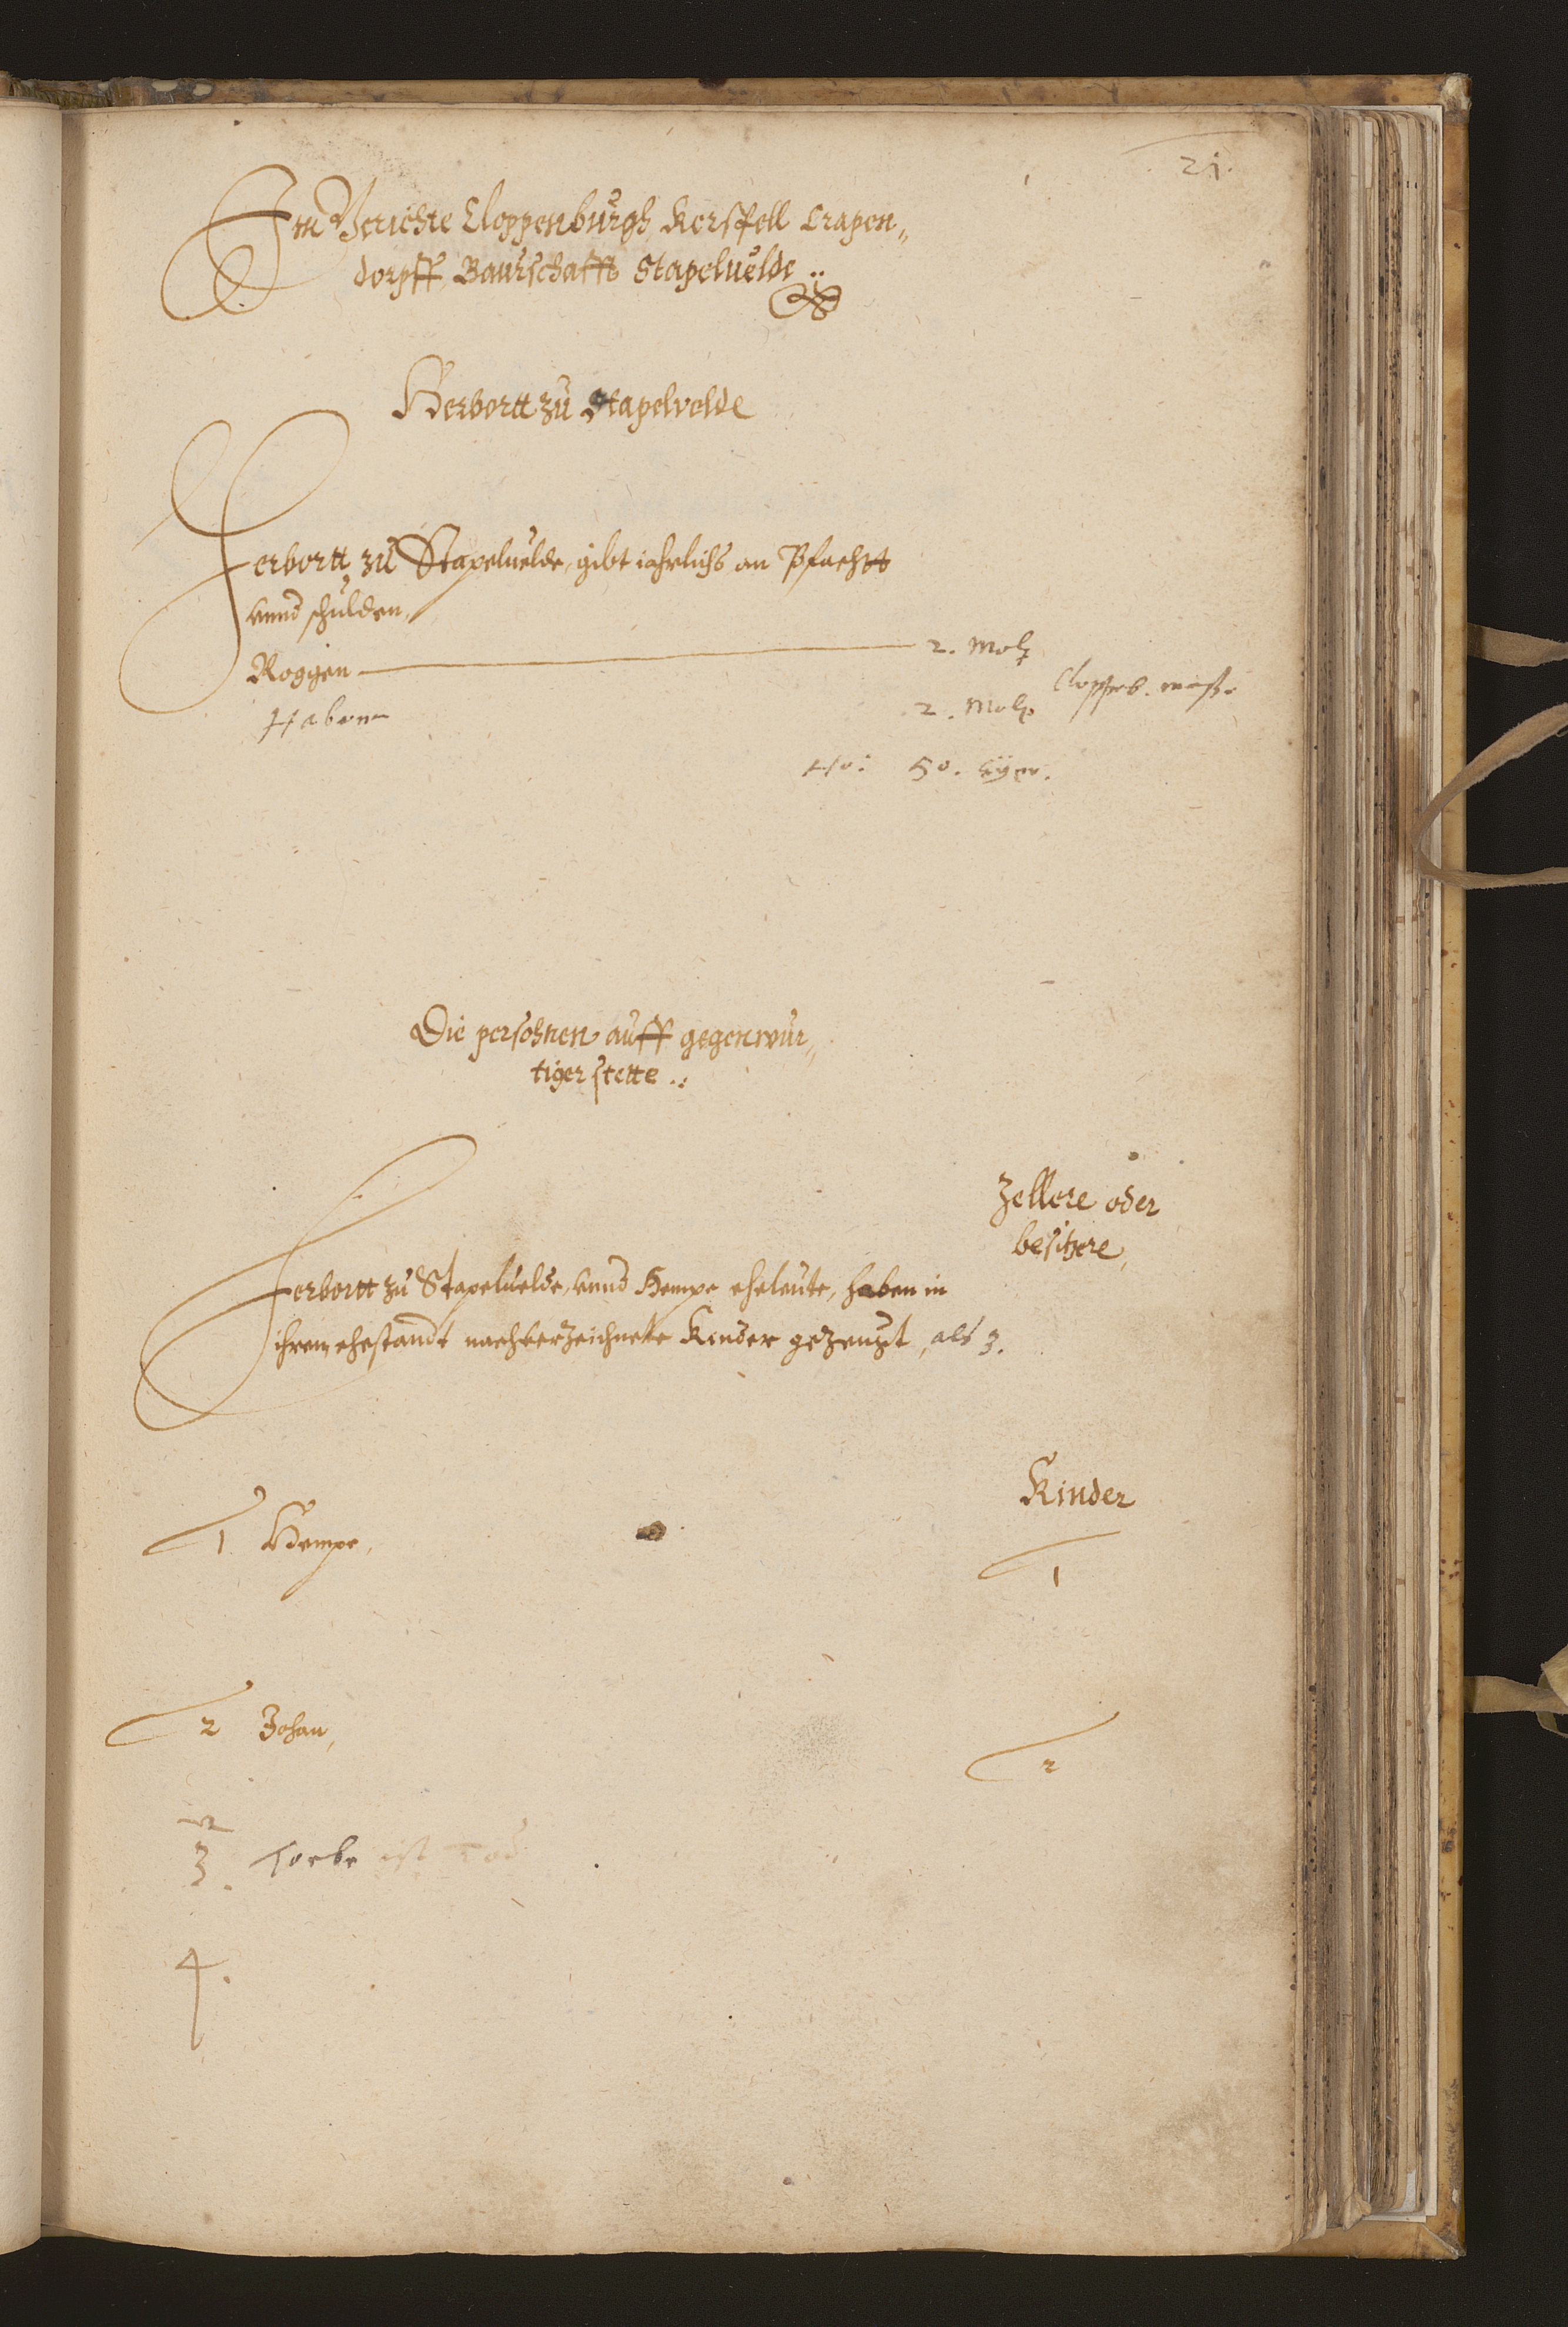 21.
Im Gerichte Cloppenburgh Kerspell Crapen„
dorpff, Baurschafft Stapeluelde
Herbortt zu Stapelvelde
Herbortt zu Stapeluelde, gibt iahrlichs an Pfachtt
vnnd schulden,
Roggen 2. Molt
Cloppenb. maße
Haberen 2. Molt
50. Eyer.
Die persohnen auff gegenwur„
tiger stette.
Zellere oder
besitzere,
Herbortt zu Stapeluelde, vnnd Hempe eheleute, haben in
ihrem ehestandt nachverzeichnete Kinder gezeugt, als 3.
Kinder
1 Hempe, 1
2 Johan, 2
3. ist tod
4.